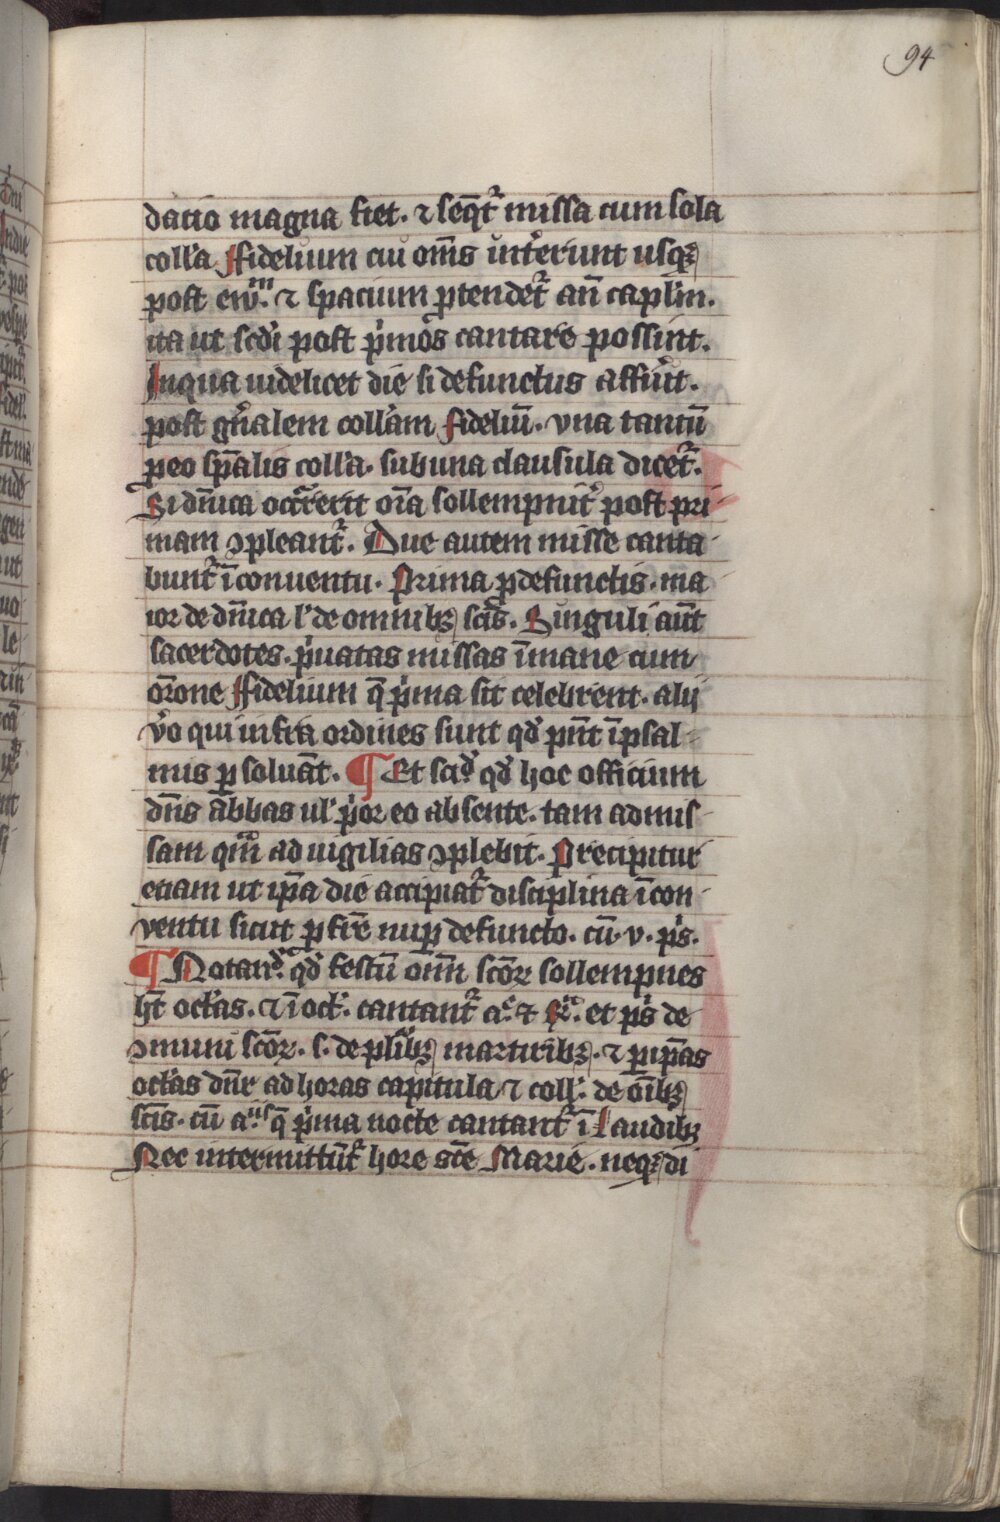 94
dacio magna fiet. ⁊ seq̄tᷣ missa cum sola
coll'a Fidelium cū om̄s intᷣerunt usqꝫ
post ewᵐ. ⁊ spacium ꝓtendetᷣ an̄ capl'm.
ita ut sc̄di post p'mos cantare possint.
Inqua uidelicet die si defunctus affu'it.
post gn̄alem coll'am fideliū. vna tantū
ꝓ eo sp̄alis coll'a. sub una clausula dicetᷣ.
Si dn̄ica occᷓrerit om̄a sollempnitᷣ post pri-
mam ꝯpleantᷣ. Due autem misse canta-
buntᷣ ī conuentu. Prima ꝓ defunctis. ma
ior de dn̄ica l' de omnibꝫ sc̄is. Singuli aūt
sacerdotes. p'uatas missas ī mane cum
or̄one Fidelium q̄ p'ma sit celebrent. alij
v'o qui infra ordines sunt qd' pn̄t ī psal-
mis ꝑsoluāt. ¶ Et sciᵈ. qd' hoc officium
dn̄s abbas ul' p'or eo absente. tam ad mis-
sam qᷓm ad uigilias ꝯplebit. Precipitur
etiam ut ip̄a die accipiatᷣ disciplina ī con-
ventu sicut ꝓ fr̄e nuꝑ defuncto. cū. v. p̄s.
¶ Notanᵈ. qd' festū om̄m sc̄oꝝ sollempnes
hn̄t oct'as. ⁊ ī oct'. cantantᷣ aᵉ. ⁊ ℟. et p̄s de
ꝯmuni sc̄oꝝ. s. de pl'ibꝫ martiribꝫ. ⁊ ꝑ ip̄as
oct'as dn̄r ad horas capitula ⁊ coll'. de om̄ibꝫ
sc̄is. cū aⁿⁱˢ q̄ p'ma nocte cantantᷣ ī Laudibꝫ
Nec intermittūtᷣ hore sc̄e Marie. neqꝫ di